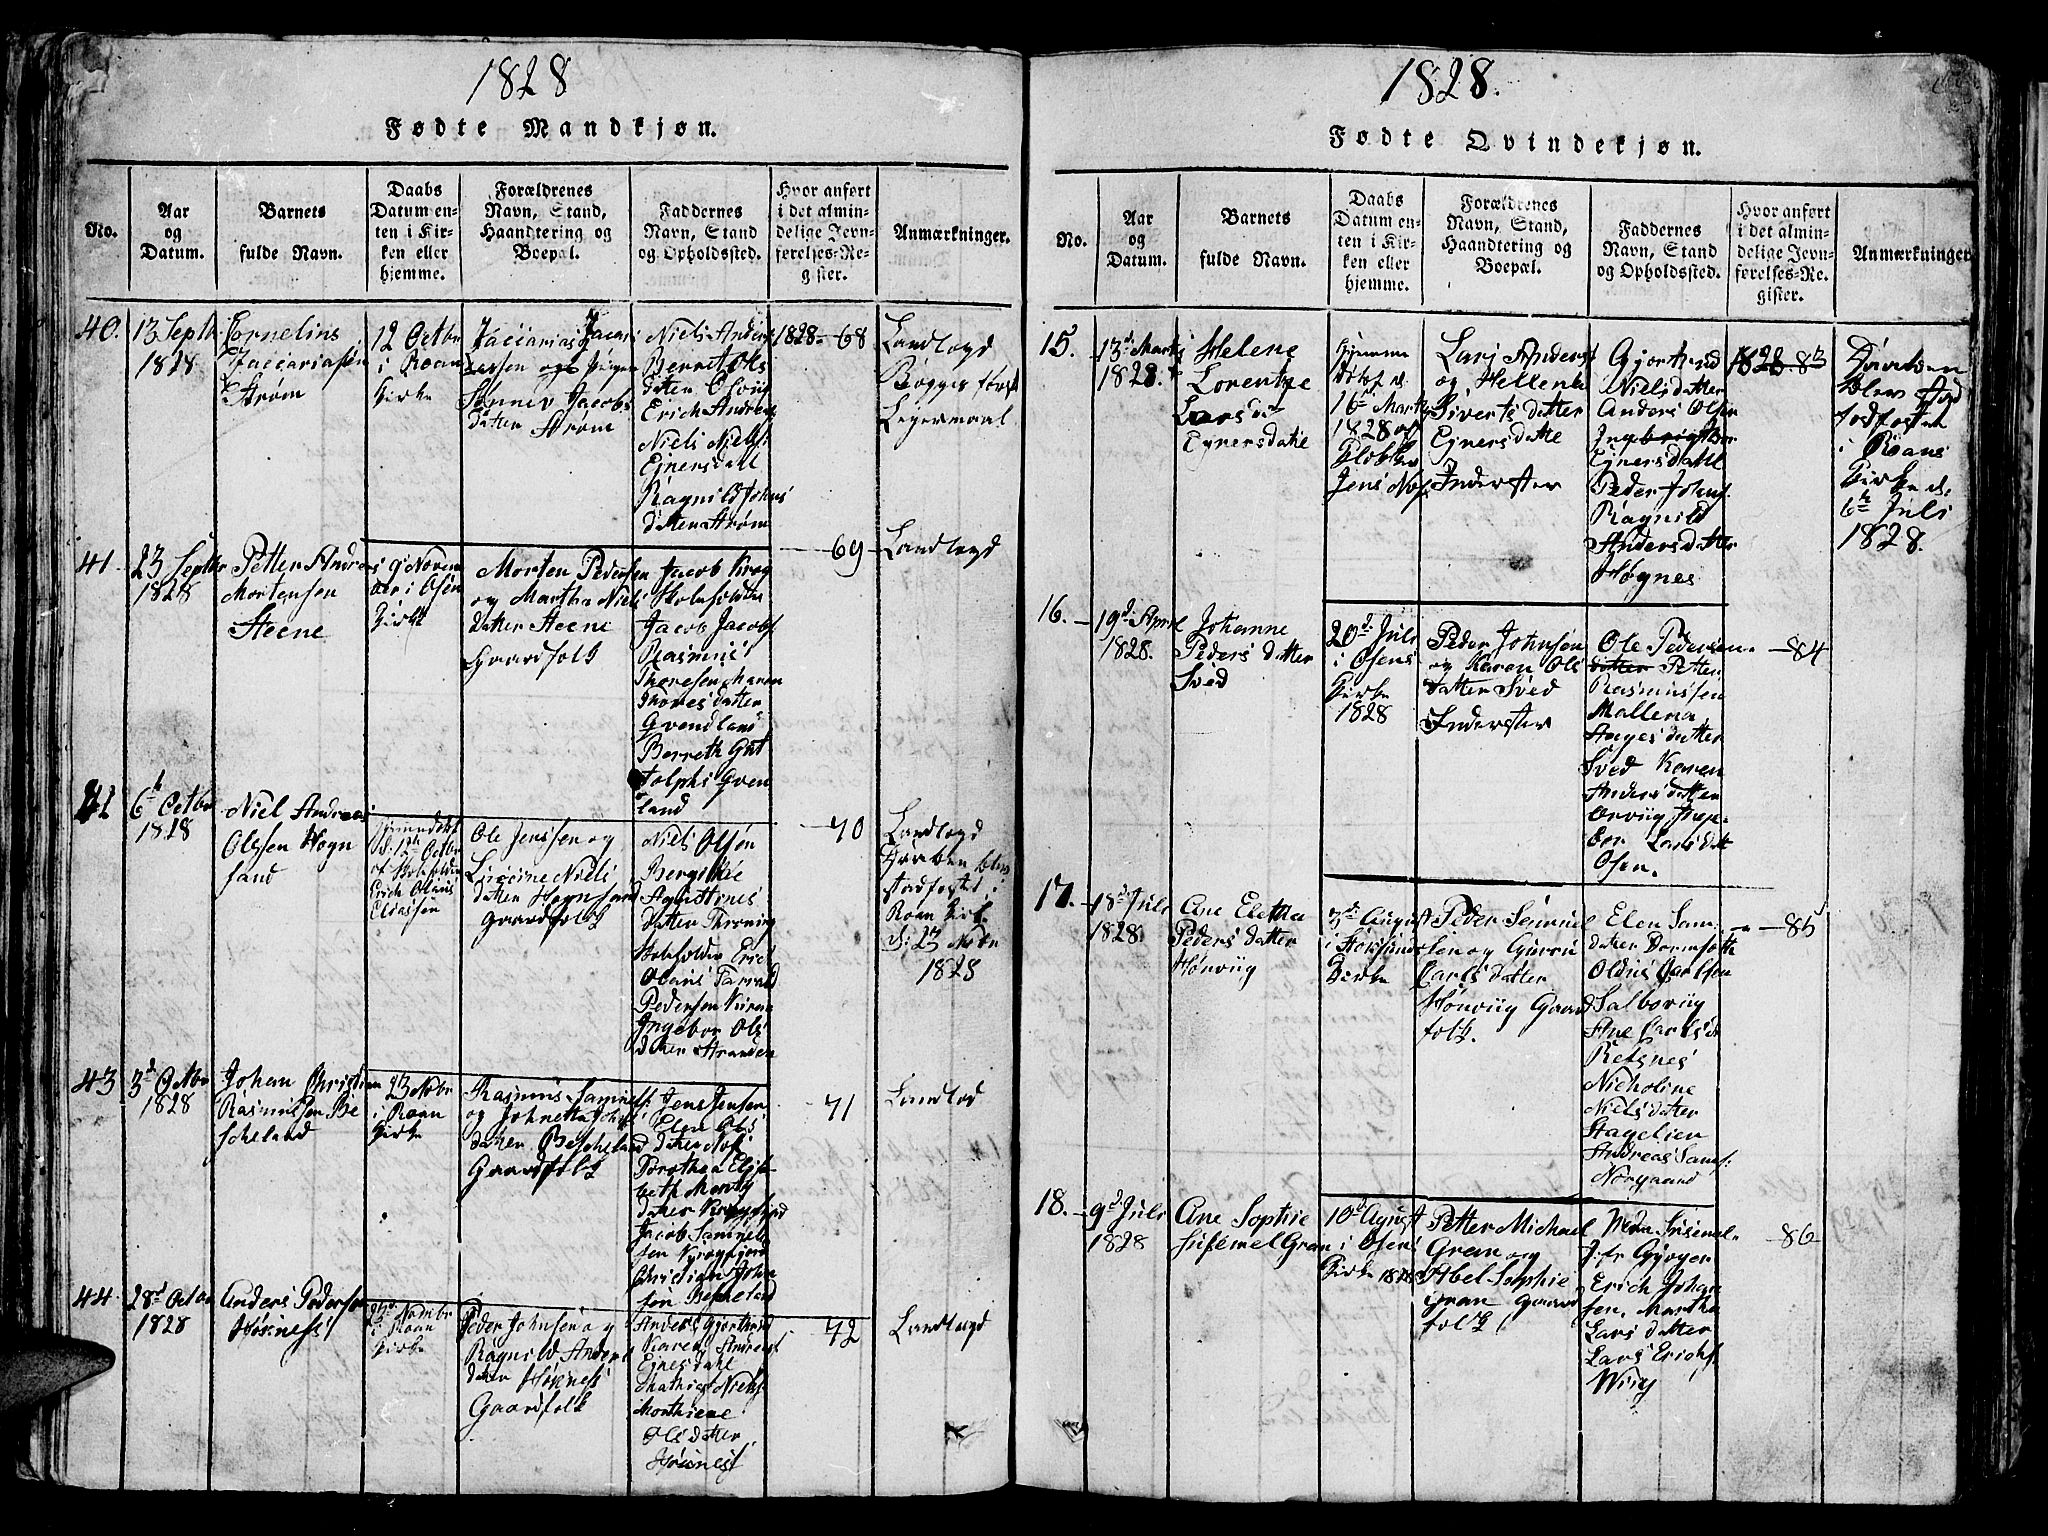 1828
Fødte Mandkjøn.
No.
Aar
og
Datum.
Barnets
fulde Navn.
Daabs
Datum en-
ten i Kir-
ken eller
hjemme.
Forældrenes
Navn, Stand,
Haandtering og
Boepæl.
Faddernes
Navn, Stand
og Opholdssted.
Hvor anført
i det almin-
delige Jevn-
førelses-Re-
gister.
Anmærkninger.
40.
13 Septb
1828
Cornelius
Zaccariasen
Strøm
12 Octbr
i Roan
Kirke
Zaccarias Zacari
Jacobs
datter Strøm
Niels Anders
Berret Ols
datter
Erich Anders
Niels Niels
Ejnersdall
Ragnild Johns
datter Strøm
1828 - 68
Landlogd
Begges først
Legermaal
41
23 Septbr
1828
Petter Andreas
Mortensen
Steene
9 Novem
ber i Osen
Kirke
Morten Pedersen
og Martha Niels
datter Steene
Gaardfolk
Jacob Krog
Skoleholder
Jacob Jacobs
Rasmus
Thoresen Maren
Thoresdatter
Qvendland
Berreth Gut
tolphs Qven
land
69
Landlogd
41
6te Octbr
1828
Niel Andreas
Olssen Hogn
sand
d: 12 Octbr
af Skoleholder
Erich Olaus
Eliassen
Ole Jenssen og
Niels
datter Hognsand
Gaardfolk
Niels Olsøn
Bergithe
datter
Skoleholder Erich
Olaus
Pedersen
Ingebor Ols
datter Stranden
70
Landlogd
Daaben blev
stadfæstet i
Roan Kirke
d: 23 Nobr
1828
43
3d Octbr
1828
Johan Christian
Rasmussen Be
scheland
23 Nobr
i Roan
Kirke
Rasmus Samuels
og Johnetta Johns
datter Bescheland
Gaardfolk
Jens Jensen
Elen Ols
datter
Dorothea Elisa
beth Morits
datter Krogfiord
Jacob Samuel
sen Krogfjord
Christian John
sen Bescheland
71
Landlod
44
28d Octbr
1828
Anders Pedersen
Høxness
23d Nombr
i Roan
Kirke
Peder Johnsen og
Ragnild Anders
datter Høxness
Gaardfolk
Anders Gjortrud
Karen Anders
Ejnesdahl
Mathias Niels
Marthiene
Olsdatter
Høxnes
72
Landlogd
1828.
Fødte Qvindekjøn.
No.
Aar
og
Datum.
Barnets
fulde Navn.
Daabs
Datum en-
ten i Kir-
ken eller
hjemme.
Forældrenes
Navn, Stand,
Haandtering og
Boepæl.
Faddernes
Navn, Stand
og Opholdssted.
Hvor anført
i det almin-
delige Jevn-
førelses-Re-
gister.
Anmærkninger
15.
13d Marts
1828.
Helene
Lorentze
Larsdr
Ejnersdahl
Hjemme
døbt d.
16de Marts
1828 af
Klokker
Jens
Lars Anders
og Hellena
Siverts datter
Ejnersdahl
Inderster
Gjortrud
Nielsdatter
Anders Olsen
Ingebrigtbor
Ejnersdahl
Peder Johns
Ragnild
Andersdatter
Høgnes
1828 - 83
Daaben
blev stad
fodfæstet
i Roans
Kirke d.
6te Juli
1828.
16.
19d April
1828.
Johanne
Peders datter
Sved
20d Juli
i Osens
Kirke
1828
Peder Johnsen
og Karen Ols
datter Sved
Inderster
Ole Pedersen
datter Petter
Rasmussen
Mallena
Aages datter
Sved Karen
Anders datter
Ørviig
Lars datt
Osen.
84
17.
18d Juli
1828.
Ane Eletha
Peders datter
Hørviig
3d August
i Stoksunds
Kirke
Peder Samuel
sen og Gurru
Carls datter
Hørviig Gaard
folk.
Elen Sam
datter
Olaus Carlsen
Salboviig
Ane Carlsd
Retsnes
Nicholine
Niels datter
Stagelien
Andreas Sams:
Norgaard
85
18.
9d Juli
1828
Ane Sophie
Gran
10d Agust
i Osens
Kirke 1828
Petter Michael
Gran og
Abel Sophie
Gran Gaard
folk
Jfr
Erich Johan
sen, Martha
Lars datter
Lars Erichs
Wiig
86